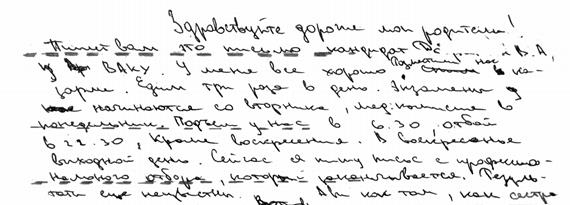 Здравствуйте дорогие мои родители!
Пишет вам это письмо кандидат В.А,
ВАКУ. У меня все хорошо. Разместили нас в ка-
зарме. Едим три раза в день. Экзамены у
нас начинаются со вторника, мед.комиссия в
понедельник. Подъем у нас в 6.30, отбой
в 22.30, кроме воскресения. В воскресенье
выходной день. Сейчас я пишу письмо с профессио-
нального отбора, который заканчивается. Резуль-
таты еще неизвестны. Как там, как сестра